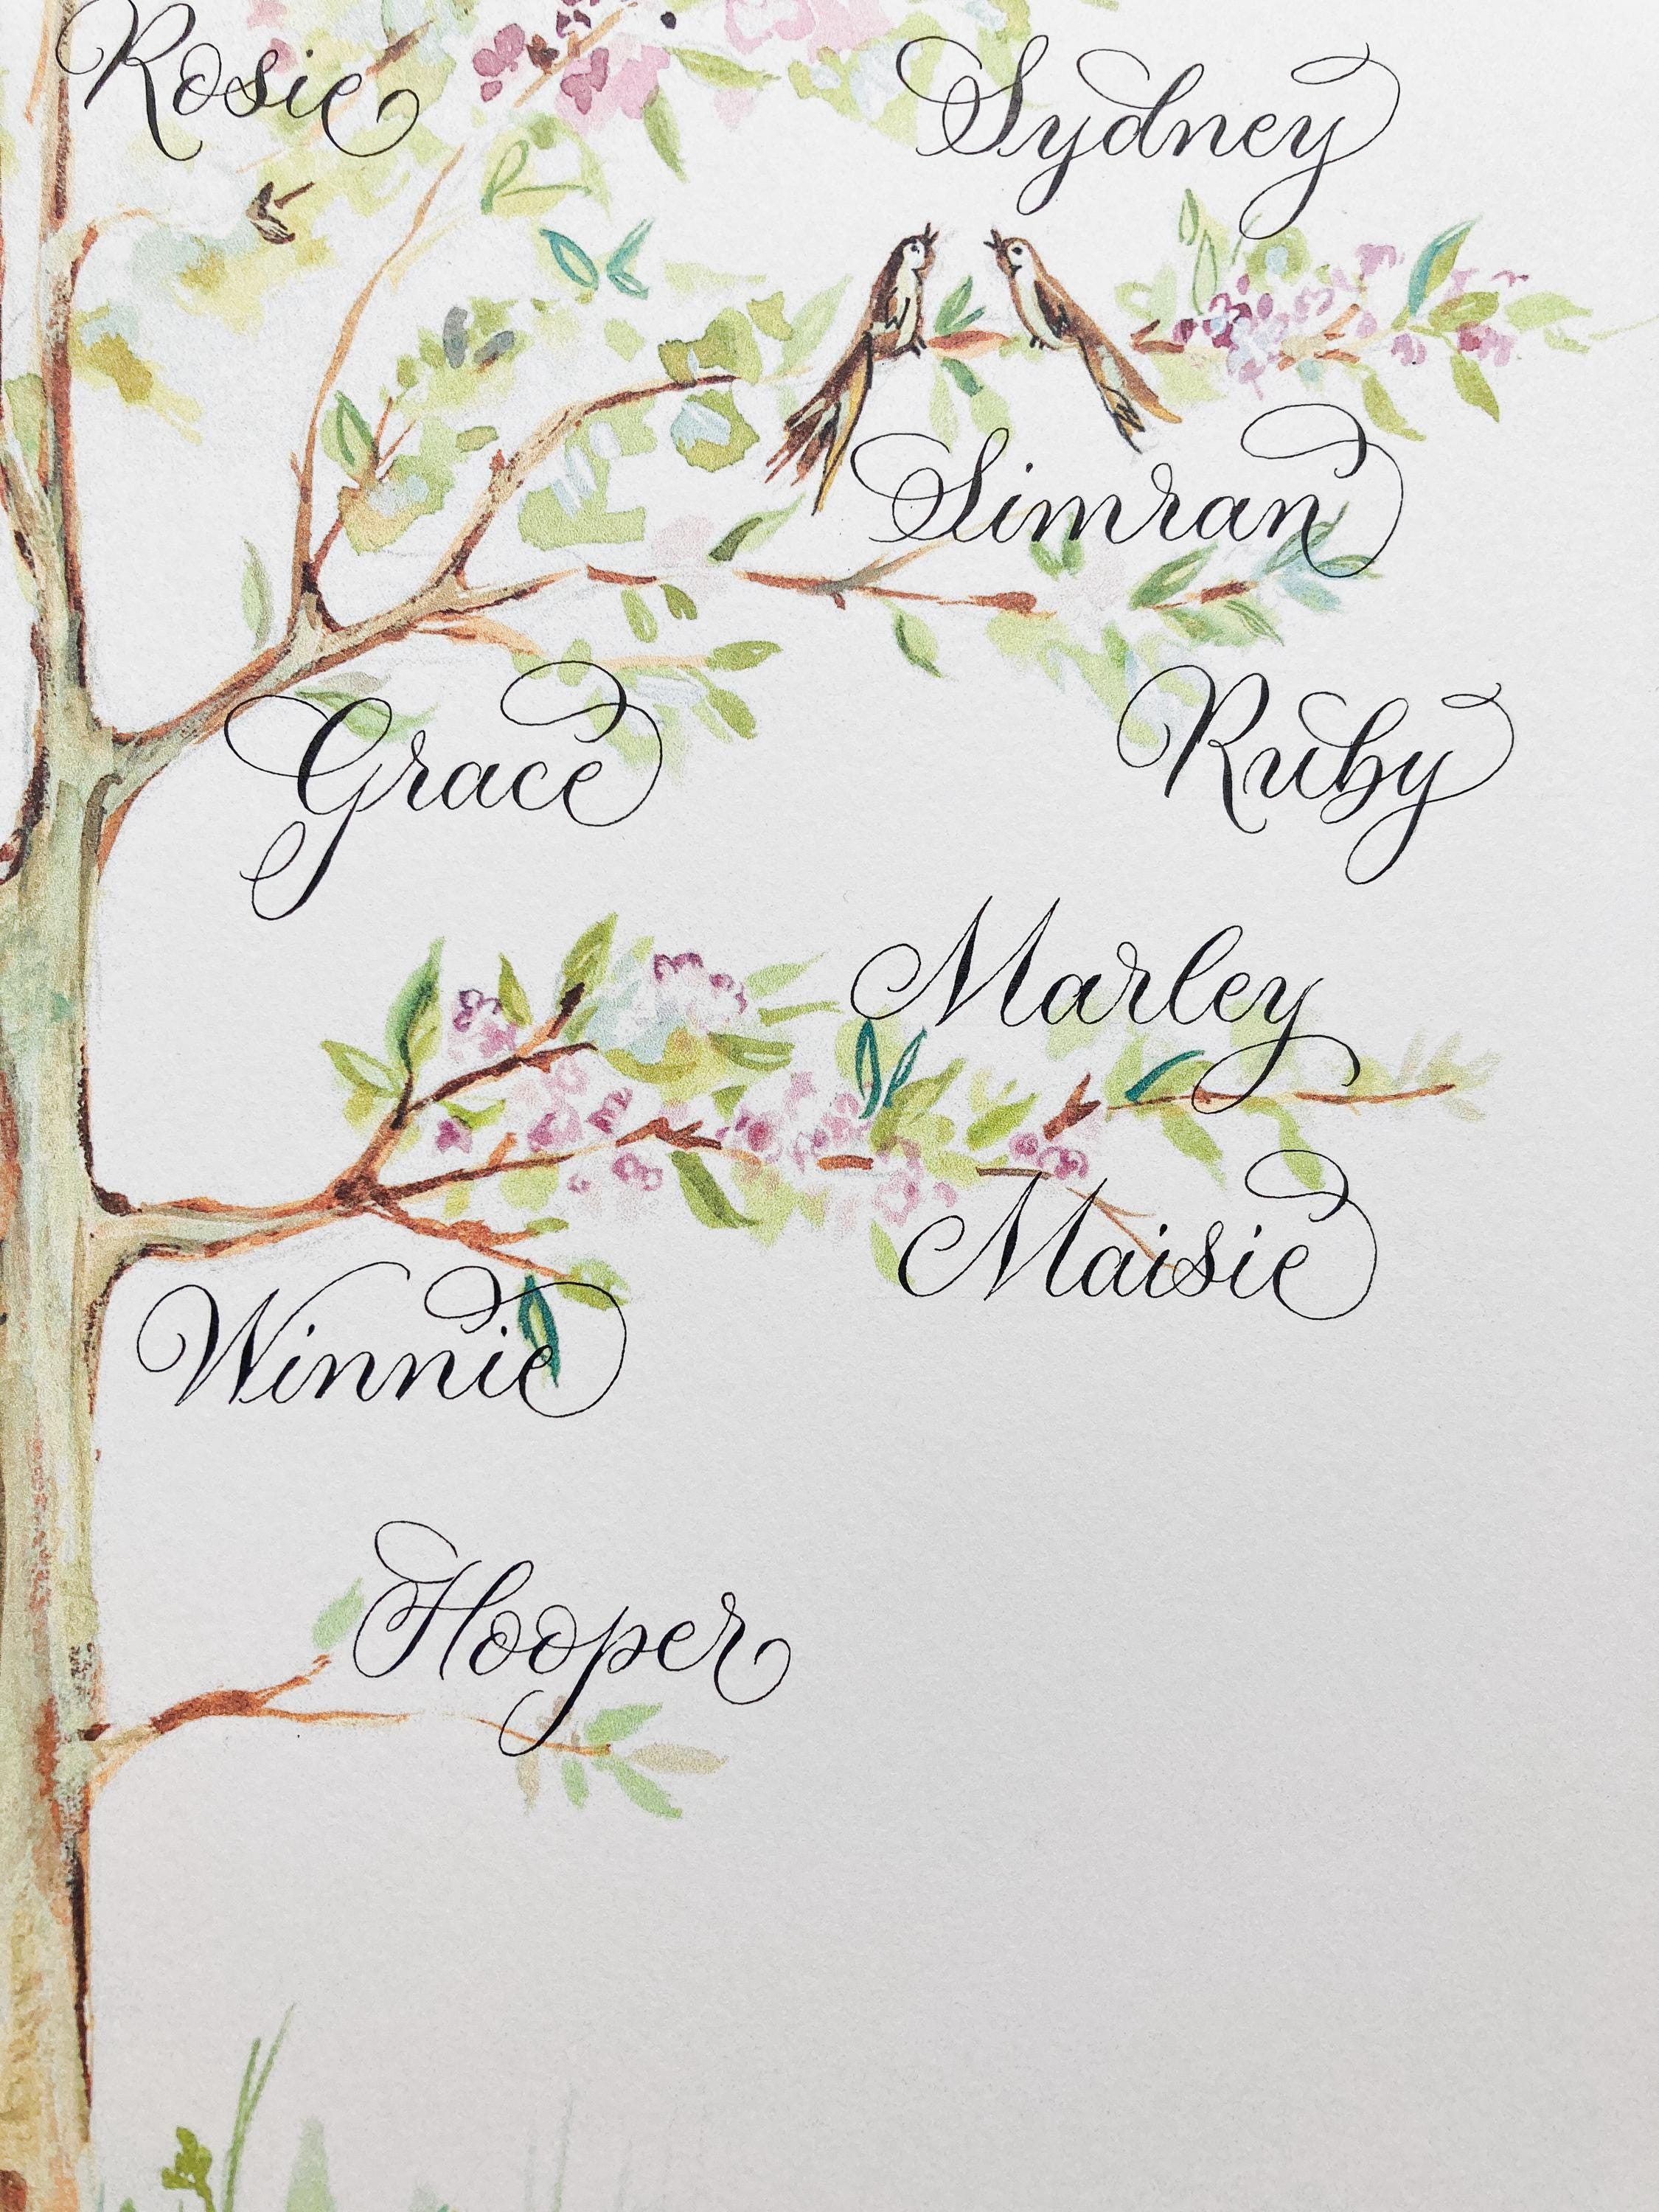 Rosie
Sydney
Simran
Grace
Ruby
Marley
Maisie
Winnie
Hooper